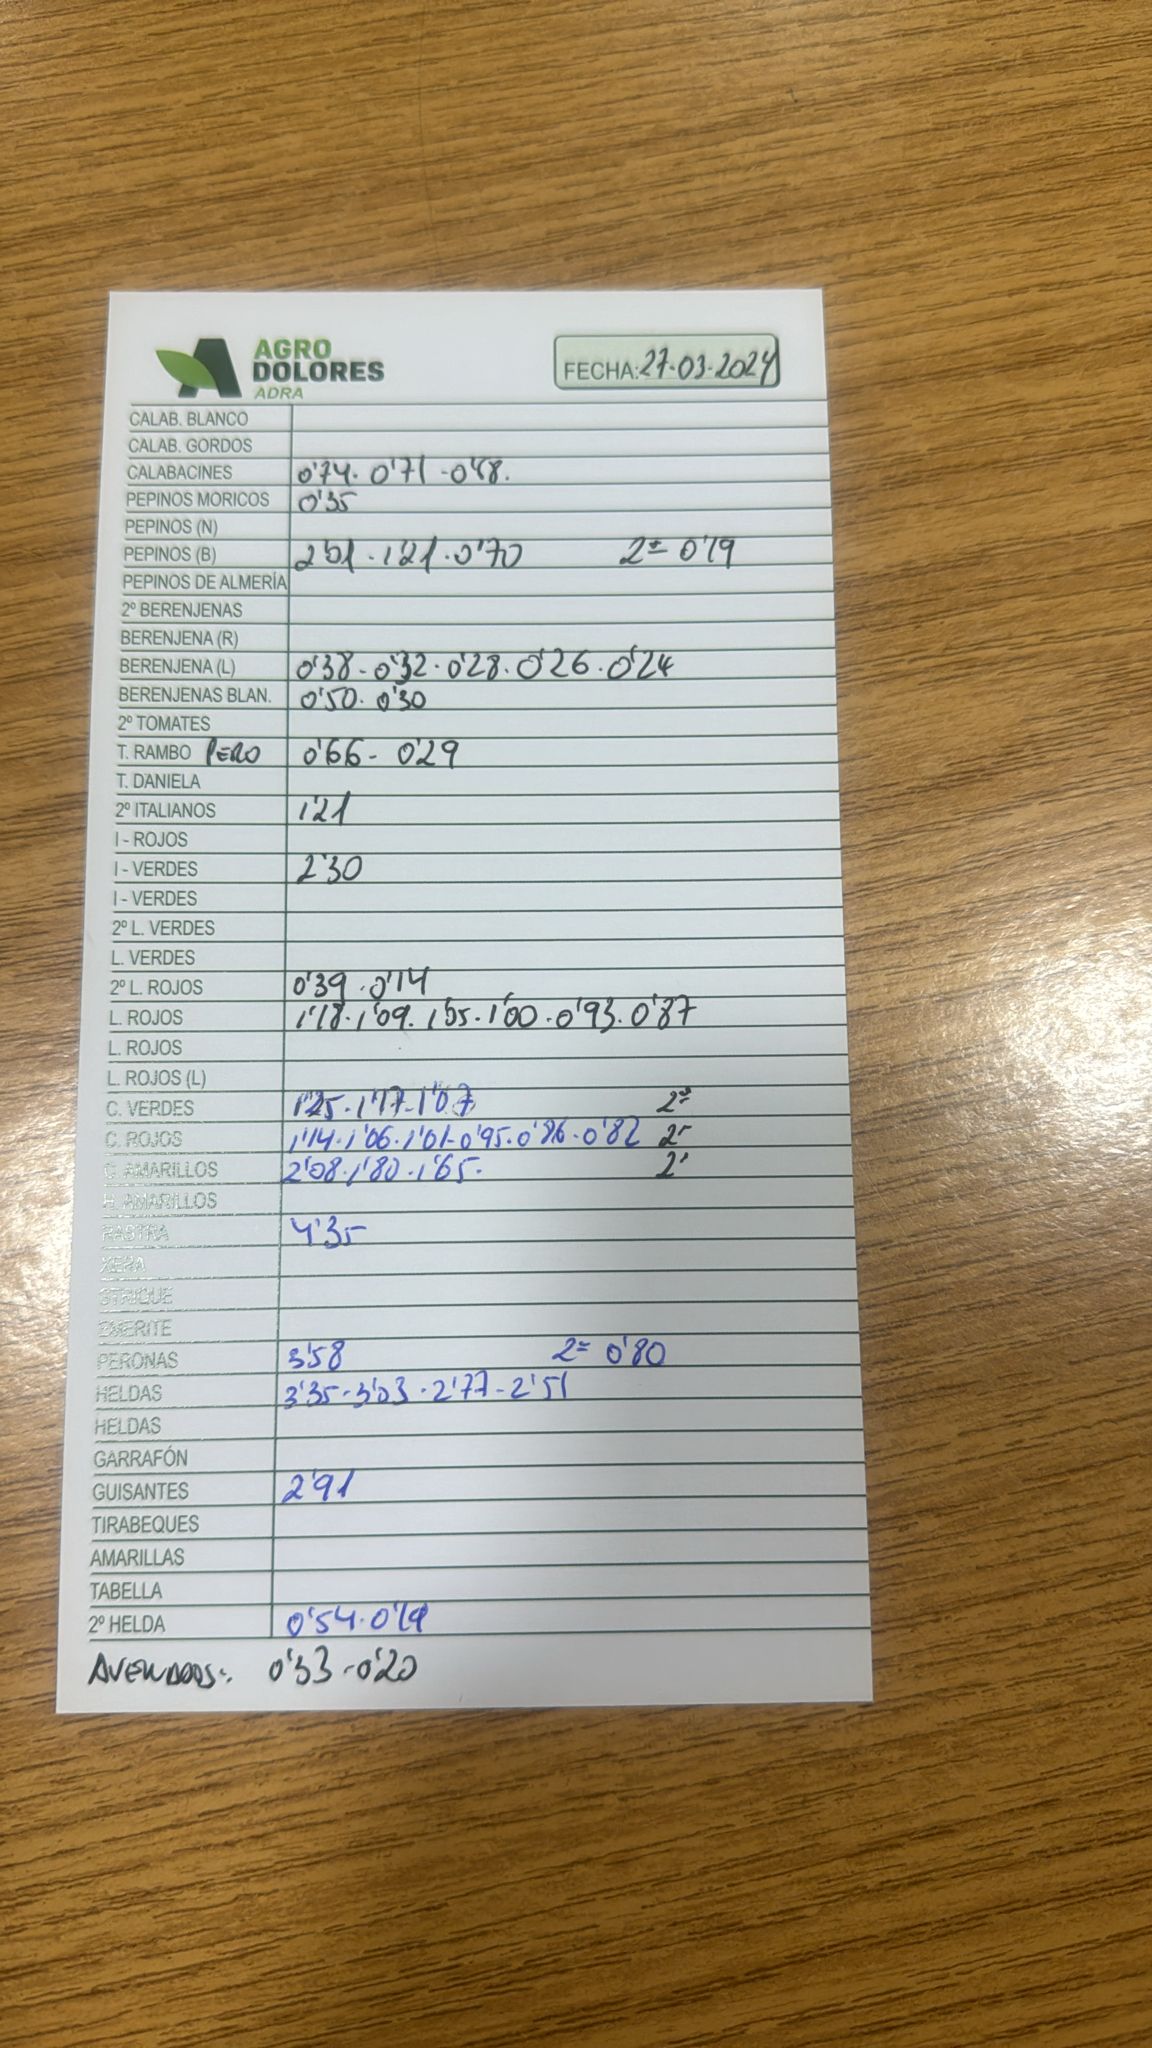 AGRO
DOLORES
ADRA
FECHA: 27-03-2024
CALAB. BLANCO
CALAB. GORDOS
CALABACINES 0'74. 0'71 - 0'48.
PEPINOS MORICOS 0'35
PEPINOS (N)
PEPINOS (B) 2'01 . 1'21 . 0'70 2ª 0'19
PEPINOS DE ALMERÍA
2º BERENJENAS
BERENJENA (R)
BERENJENA (L) 0'38 - 0'32 . 0'28 . 0'26 . 0'24
BERENJENAS BLAN. 0'50 . 0'30
2º TOMATES
T. RAMBO PERO 0'66 - 0'29
T. DANIELA
2º ITALIANOS 1'21
I - ROJOS
I - VERDES 2'30
I - VERDES
2º L. VERDES
L. VERDES
2º L. ROJOS 0'39 . 0'14
L. ROJOS 1'18 . 1'09 . 1'05 . 1'00 . 0'93 . 0'87
L. ROJOS
L. ROJOS (L)
C. VERDES 1'25 . 1'17 - 1'07 2ª
C. ROJOS 1'14 . 1'06 . 1'01 - 0'95 . 0'86 . 0'82 2ª
C. AMARILLOS 2'08 . 1'80 . 1'65 . 2'
H. AMARILLOS
RASTRA 4'35
XERA
STRIQUE
EMERITE
PERONAS 3'58 2ª 0'80
HELDAS 3'35 - 3'03 . 2'77 - 2'51
HELDAS
GARRAFÓN
GUISANTES 2'91
TIRABEQUES
AMARILLAS
TABELLA
2º HELDA 0'54 . 0'19
0'33 - 0'20